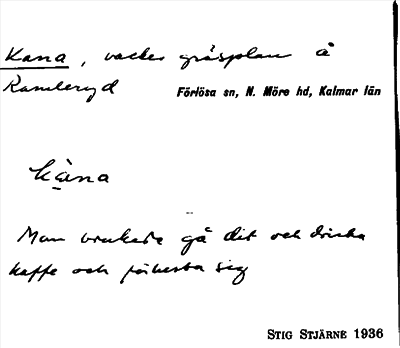 Kana, vacker gräsplan å
Ramleryd Förlösa sn, N. Möre hd, Kalmar län
käna
Man brukade gå dit och dricka
kaffe och förlusta sig
STIG STJÄRNE 1936